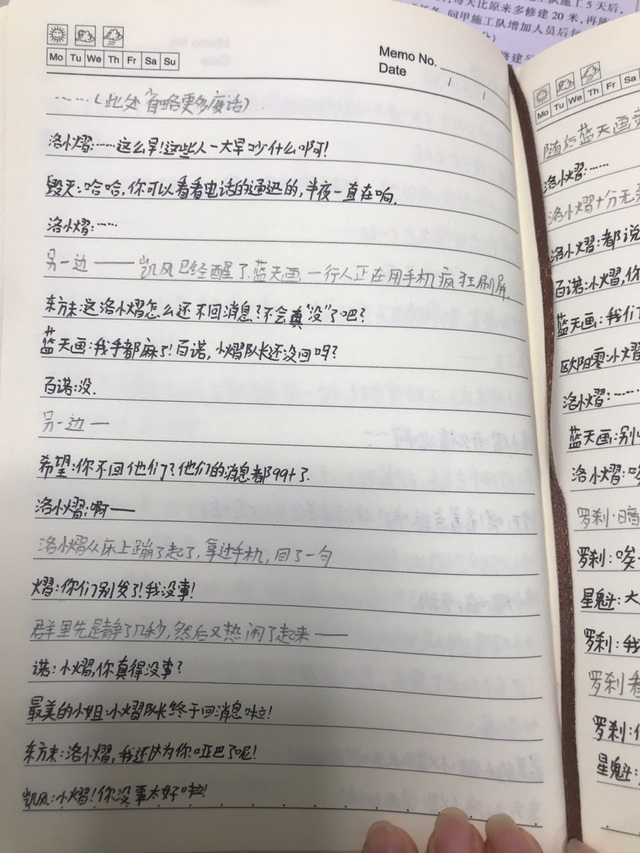 队施工5天后，
每天比原来多修建20米，再
问甲施工队增加人员后每
Memo No.
Date / /
Mo Tu We Th Fr Sa Su
……（此处省略更多废话）
洛小熠：……这么早！这些人一大早吵什么啊！
毁灭：哈哈，你可以看看电话的通迅的，半夜一直在响。
洛小熠：……
另一边——凯风已经醒了，蓝天画一行人正在用手机疯狂刷屏，
东方末：这洛小熠怎么还不回消息？不会真“没”了吧？
蓝天画：我手都麻了！百诺，小熠队长还没回吗？
百诺：没.
另一边—
希望：你不回他们？他们的消息都99+了.
洛小熠：啊——
洛小熠从床上蹦了起了，拿过手机，回了一句
熠：你们别发了！我没事！
群里先是静了几秒，然后又热闹了起来——
诺：小熠，你真得没事？
最美的小姐：小熠队长终于回消息啦！
东方末：洛小熠，我还以为你哑巴了呢！
凯风：小熠！你没事太好啦！
Mo Tu We Th
随后蓝天画
洛小熠：……
洛小熠十分无
洛小熠：都说
百诺：小熠，你
蓝天画：我们
欧阳零：小熠
洛小熠：……
蓝天画：别
洛小熠：
罗刹：暗
罗刹：唉
星魁：大
罗刹：我
罗刹看
罗刹：
星魁：